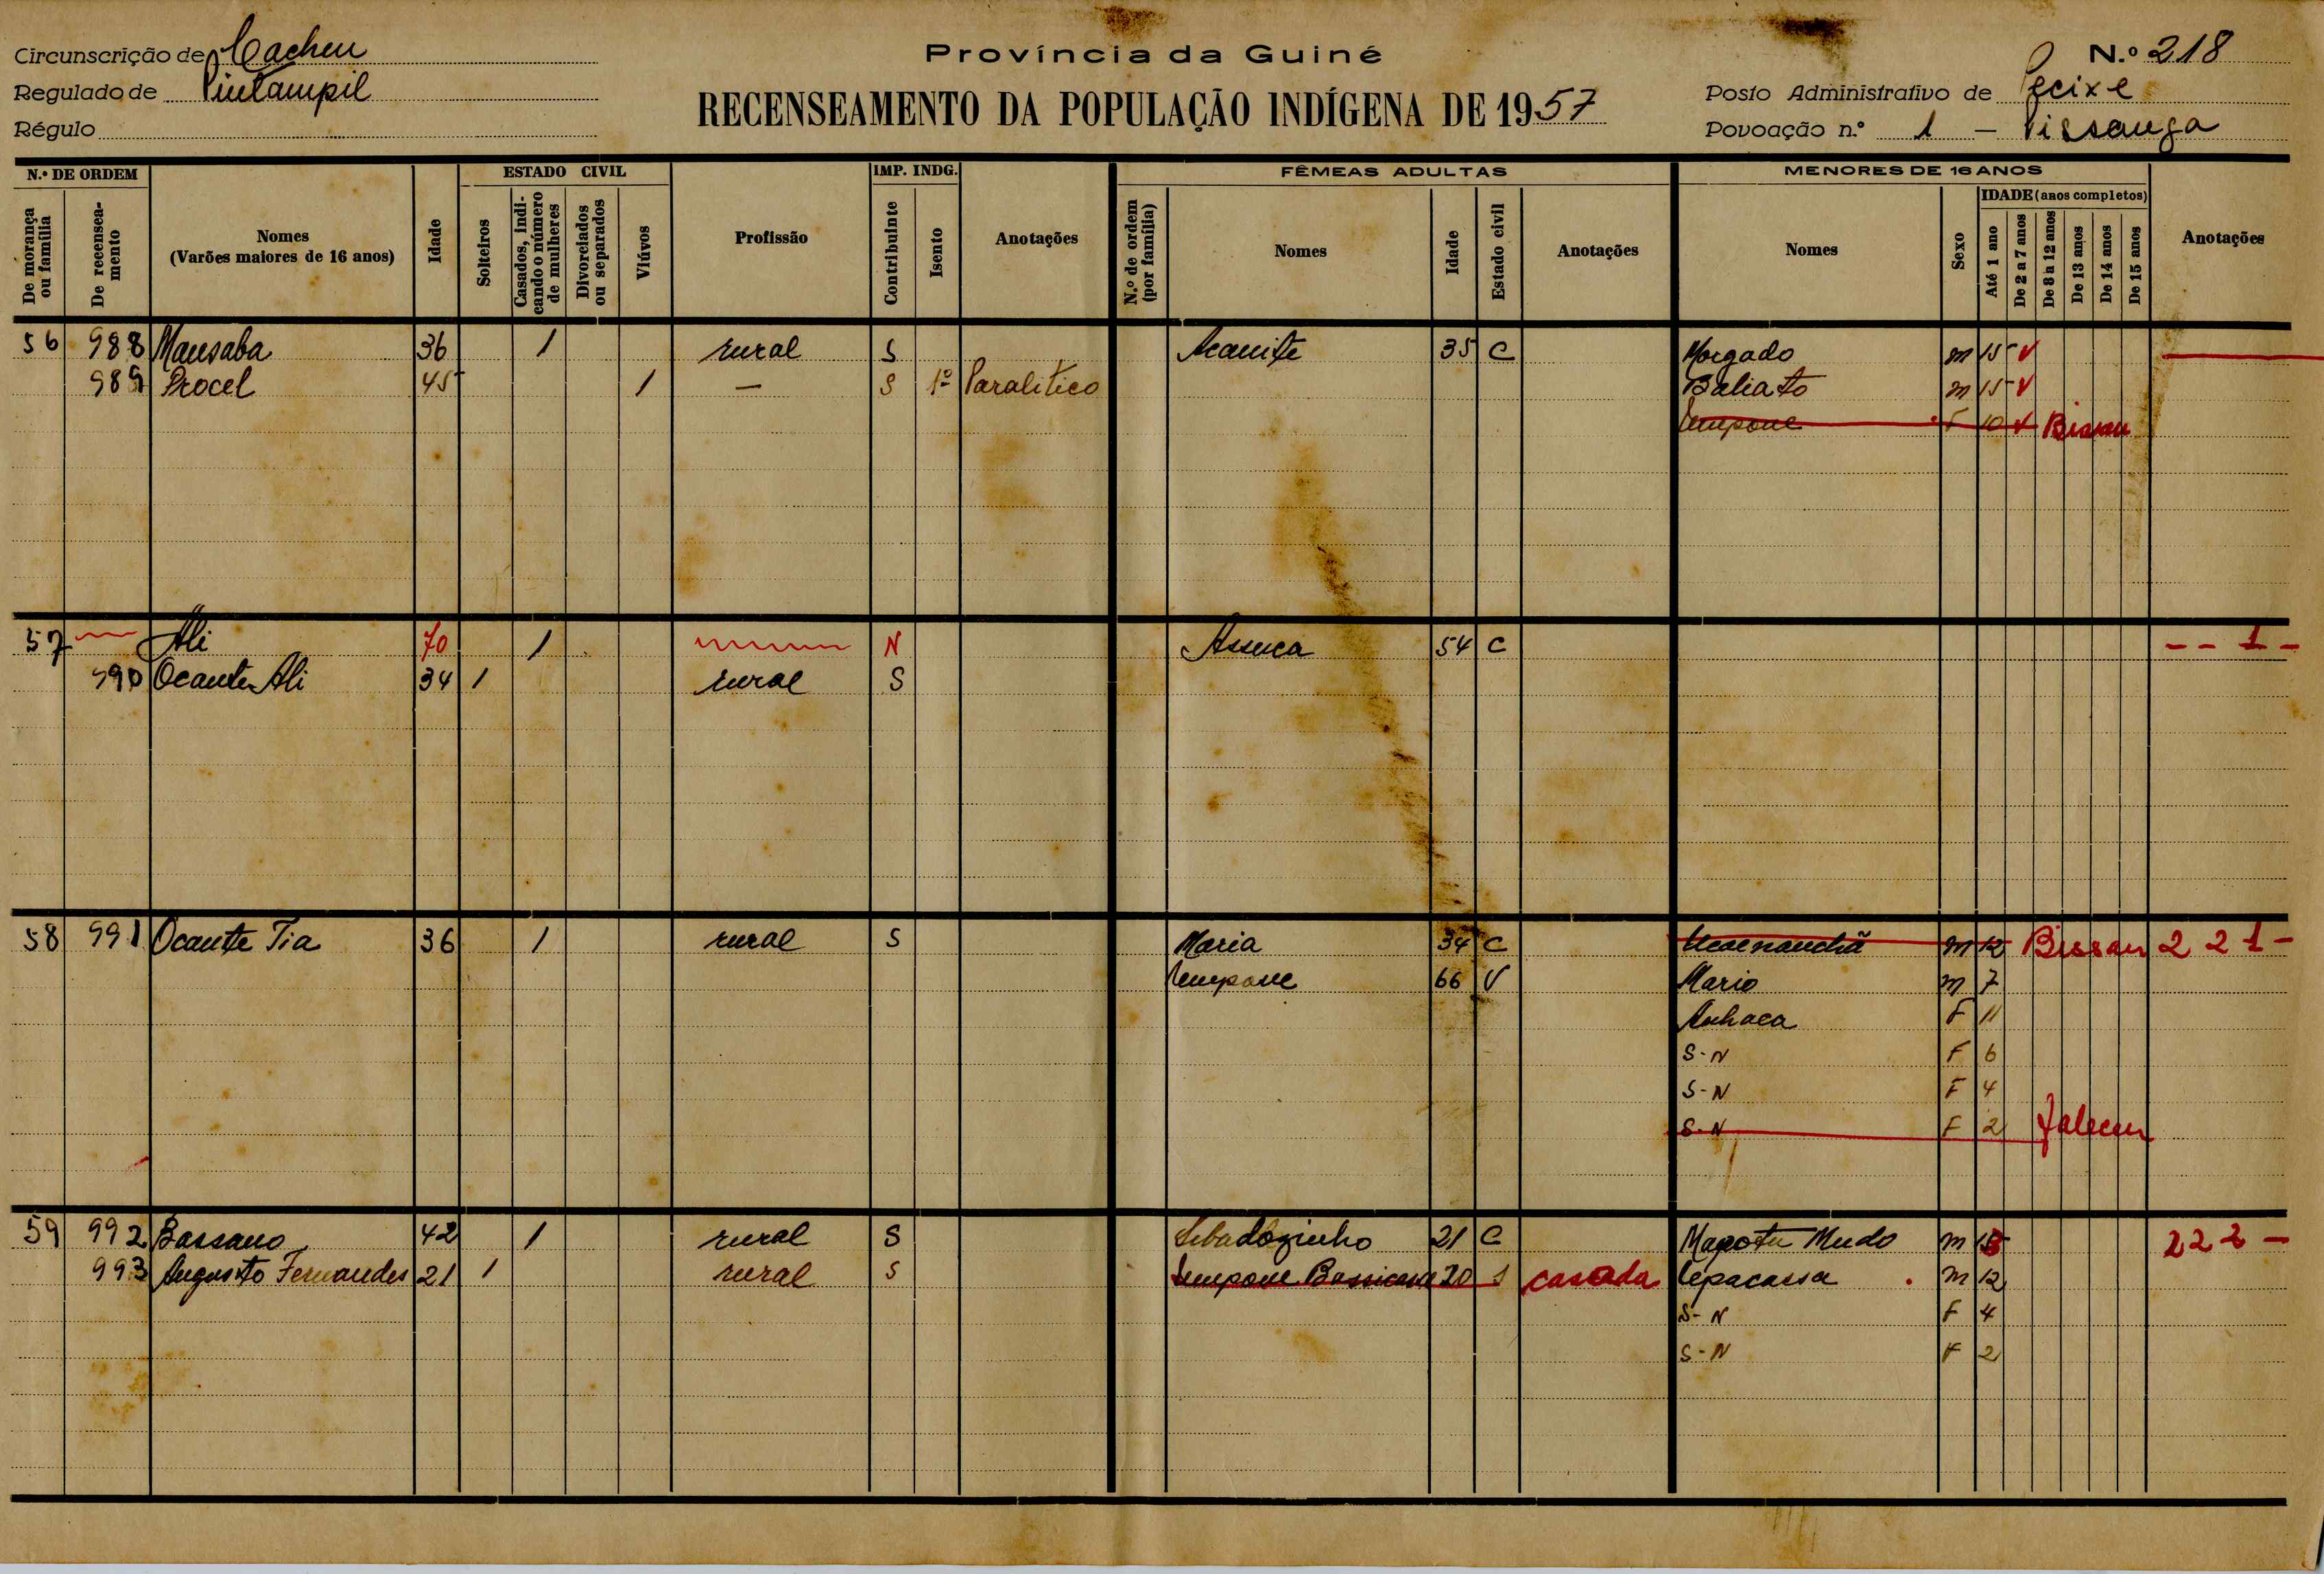 Circunscrição de Cacheu
Regulado de Pintampil
Régulo
Província da Guiné
RECENSEAMENTO DA POPULAÇÃO INDÍGENA DE 1957
N.º 218
Posto Administrativo de Pecixe
Povoação n.º 1 — Pissanga
N.º DE ORDEM
De morança ou família
De recenseamento
Nomes
(Varões maiores de 16 anos)
Idade
ESTADO CIVIL
Solteiros
Casados, indicando o número de mulheres
Divorciados ou separados
Viúvos
Profissão
IMP. INDG.
Contribuinte
Isento
Anotações
FÊMEAS ADULTAS
N.º de ordem (por família)
Nomes
Idade
Estado civil
Anotações
MENORES DE 16 ANOS
Nomes
Sexo
IDADE (anos completos)
Até 1 ano
De 2 a 7 anos
De 8 a 12 anos
De 13 anos
De 14 anos
De 15 anos
Anotações
56 988 Mansaba 36 1 rural S Acanite 35 C Morgado m 15 V
989 Procel 45 1 — S 1º Paralitico Baliato m 15 V
Umpone F 10 V Bissau
57 Ali 70 1 N Assuca 54 C - - 1 -
990 Ocante Ali 34 1 rural S
58 991 Ocante Tia 36 1 rural S Maria 34 C m 12 Bissau 2 2 1 -
Umpone 66 V Mario m 7
Anhaca F 11
S-N F 6
S-N F 4
S-N F 2 faleceu
59 992 Bassano 42 1 rural S 21 C Mapotu Mudo m 2 2 2 -
993 Augusto Fernandes 21 1 rural S Umpone 20 S casada Cepacassa m 12
S-N F 4
S-N F 2